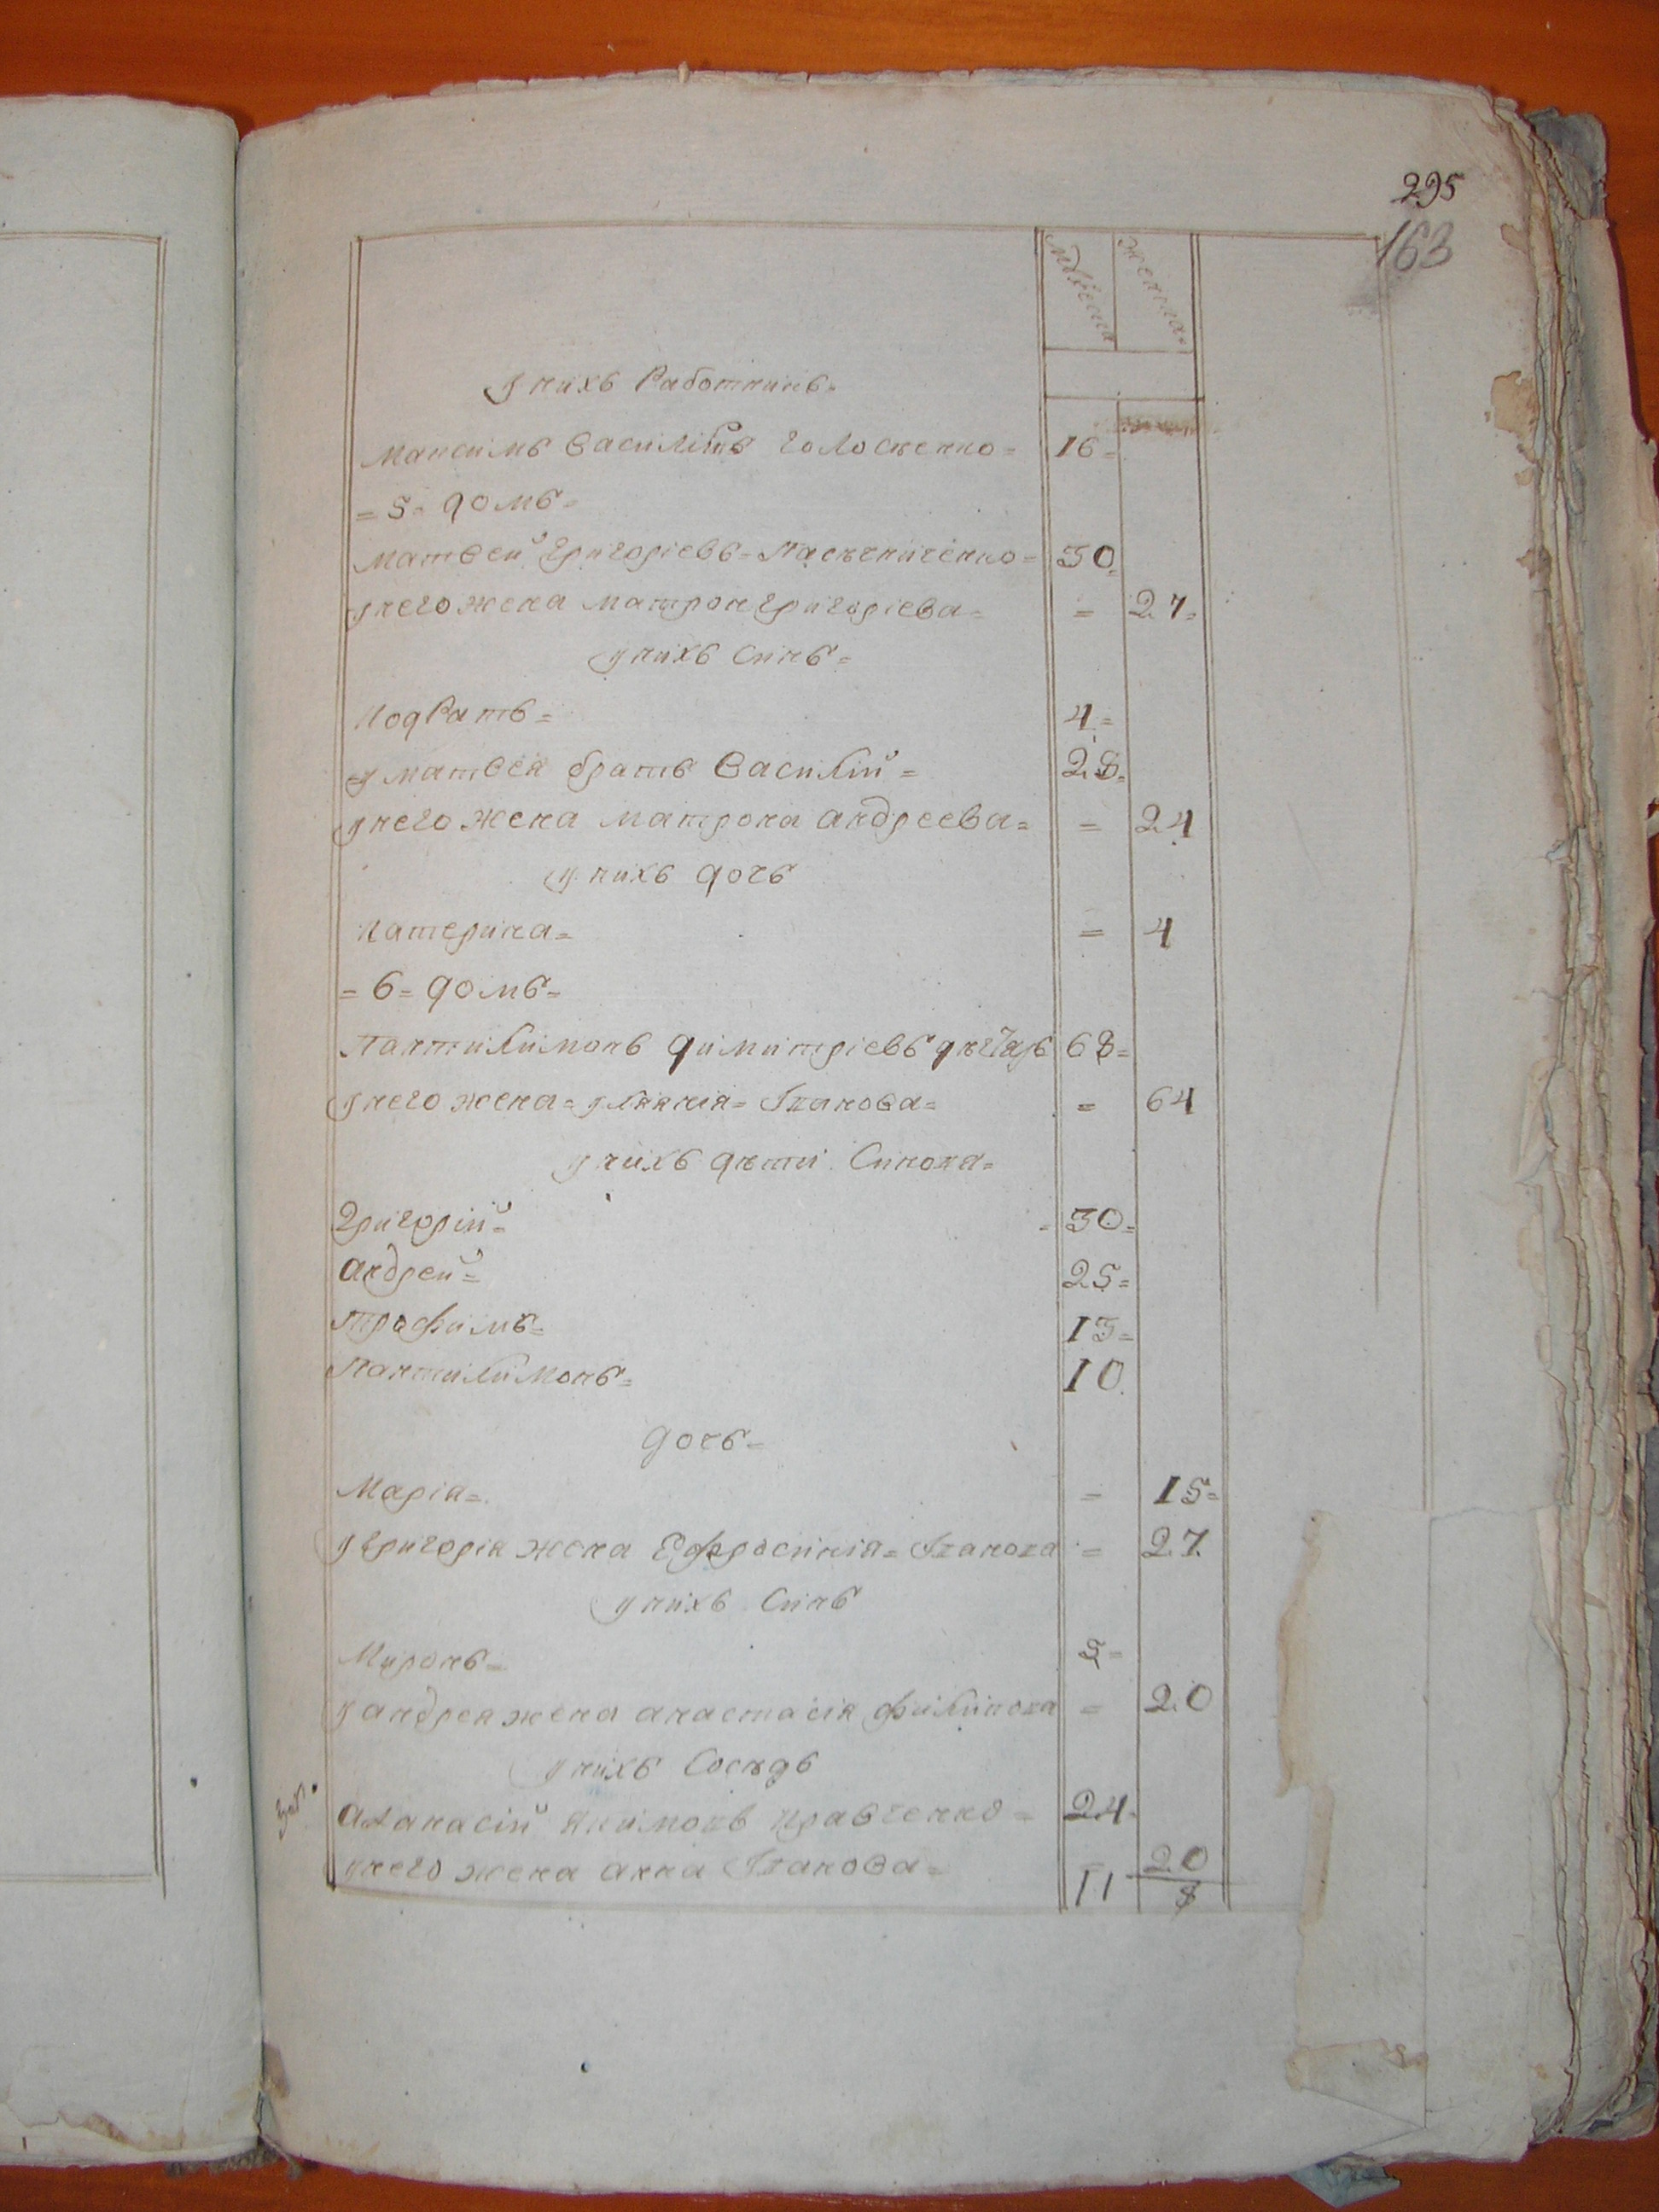 295
163
мужеска женска
у нихъ Работникъ=
Максимъ Василіевъ Голосненко= 16=
=5= домъ=
Матвей Григоріевъ= Пасѣчниченко= 30=
у него жена Матрона Григоріева= = 27=
у нихъ Синъ=
Кодратъ= 4=
у Матвея братъ Василій= 28=
у него жена Матрона Андреева= = 24
у нихъ дочь
Катерина= = 4
=6= домъ=
Пантилимонъ Димитріевъ 68=
у него жена= Улияния= Іванова= = 64
у нихъ дѣти Синова=
Григорій= =30=
Андрей= 25=
Трофимъ= 13=
Пантилимонъ= 10
дочь=
Марія= = 15=
у Григорія жена Ефросинія= Іванова = 27
у нихъ Синъ
Миронъ= 5=
у Андрея жена Анастасія Филипова = 20
у нихъ Сосѣдъ
Аѳанасій Якимовъ Кравченко= 24=
у него жена Анна Іванова= = 20
11 8